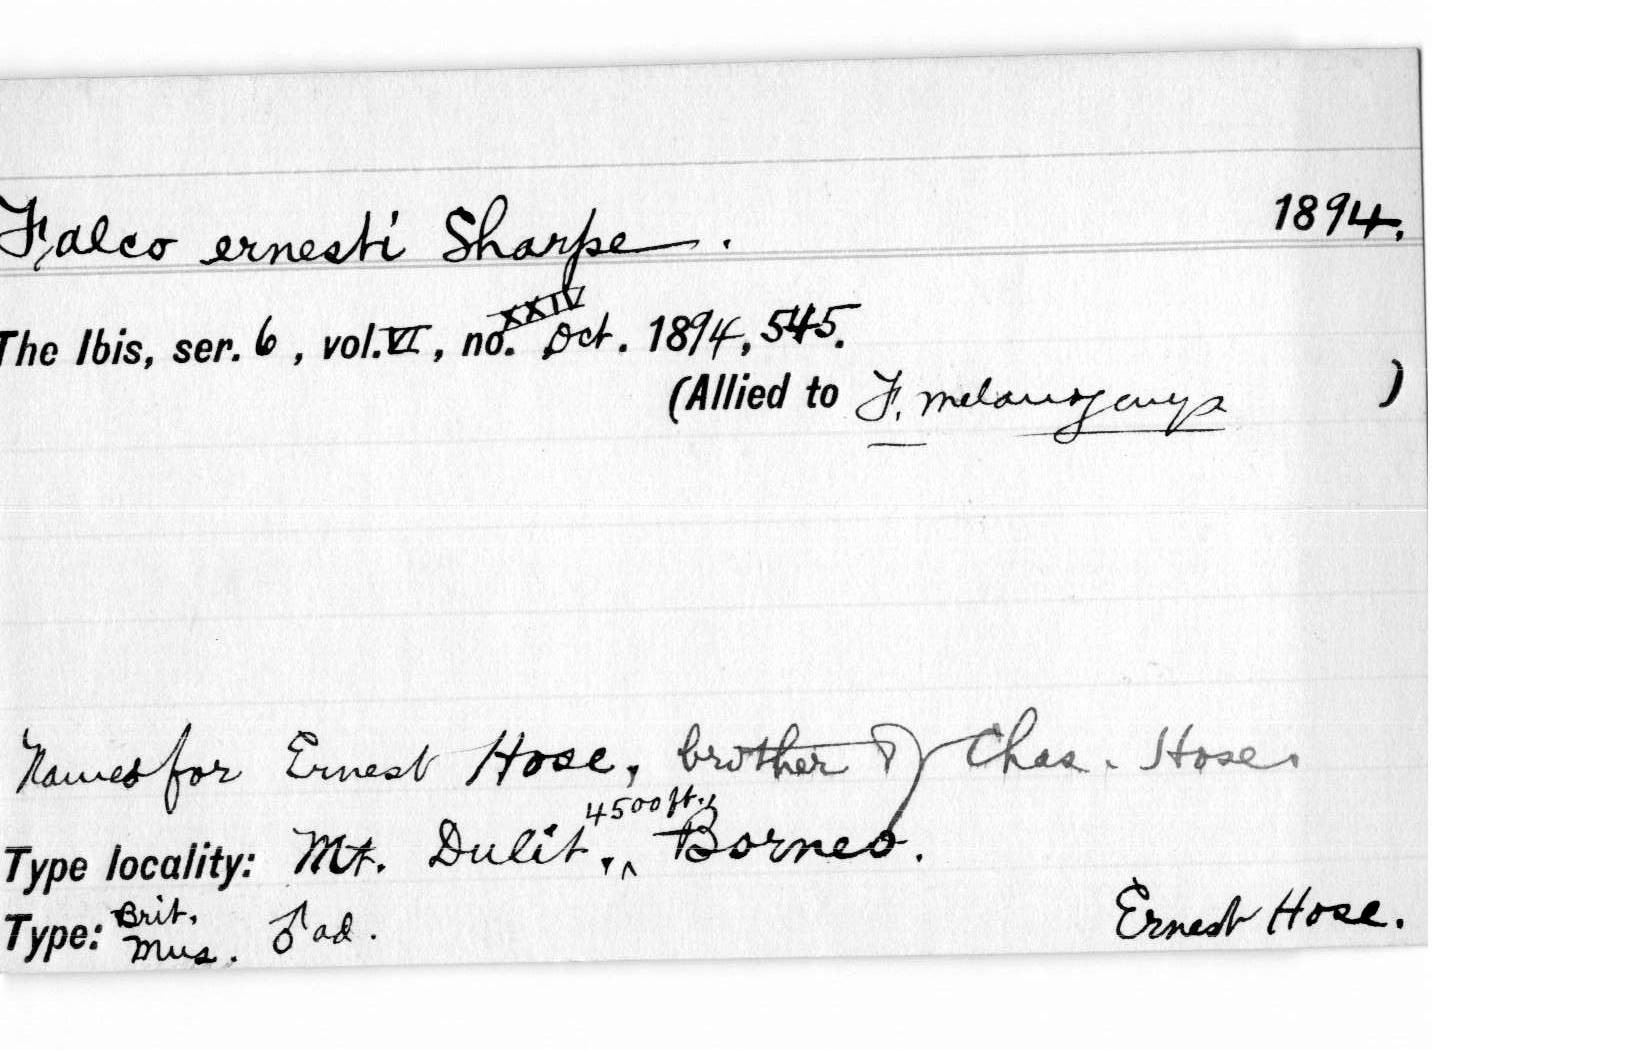 Falco ernesti Sharpe. 1894.
The Ibis, ser. 6, vol. VI, no. XXIV Oct. 1894, 545.
(Allied to F. melanogenys )
Named for Ernest Hose, brother of Chas. Hose.
Type locality: Mt. Dulit, 4500 ft., Borneo.
Type: Brit. Mus. ♂ ad. Ernest Hose.